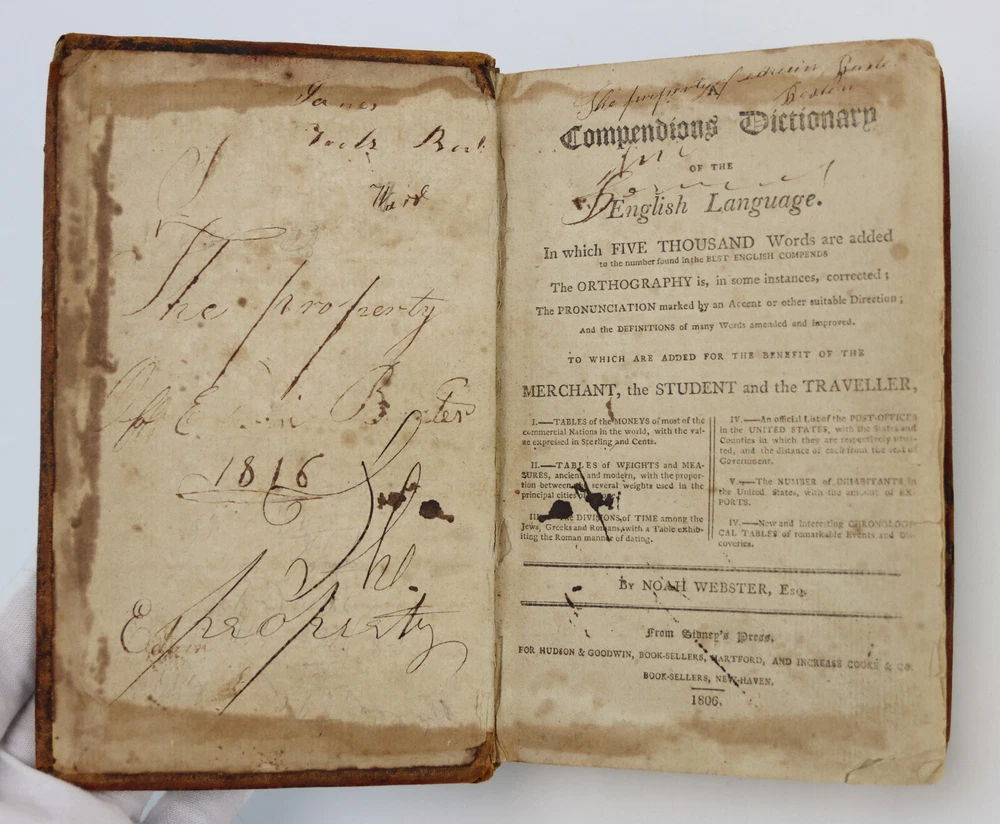 James
Ward
The property
Off Edwin Baxter
1816
The
property
Edwin
The property of Edwin
Boston
A
Compendious Dictionary
OF THE
English Language.
In which FIVE THOUSAND Words are added
to the number found in the BEST ENGLISH COMPENDS
The ORTHOGRAPHY is, in some instances, corrected;
The PRONUNCIATION marked by an Accent or other suitable Direction;
And the DEFINITIONS of many Words amended and improved.
TO WHICH ARE ADDED FOR THE BENEFIT OF THE
MERCHANT, the STUDENT and the TRAVELLER,
I.—TABLES of the MONEYS of most of the
commercial Nations in the world, with the val-
ue expressed in Sterling and Cents.
II.—TABLES of WEIGHTS and MEA-
SURES, ancient and modern, with the propor-
tion between the several weights used in the
principal cities of
III.—The DIVISIONS of TIME among the
Jews, Greeks and Romans, with a Table exhib-
iting the Roman manner of dating.
IV.—An official List of the POST-OFFICES
in the UNITED STATES, with the States and
Counties in which they are respectively situa-
ted, and the distance of each from the seat of
Government.
V.—The NUMBER of INHABITANTS in
the United States, with the amount of EX-
PORTS.
IV.—New and interesting CHRONOLOGI-
CAL TABLES of remarkable Events and Dis-
coveries.
By NOAH WEBSTER, Esq.
From Sidney's Press,
FOR HUDSON & GOODWIN, BOOK-SELLERS, HARTFORD, AND INCREASE COOKE & CO.
BOOK-SELLERS, NEW-HAVEN.
1806.